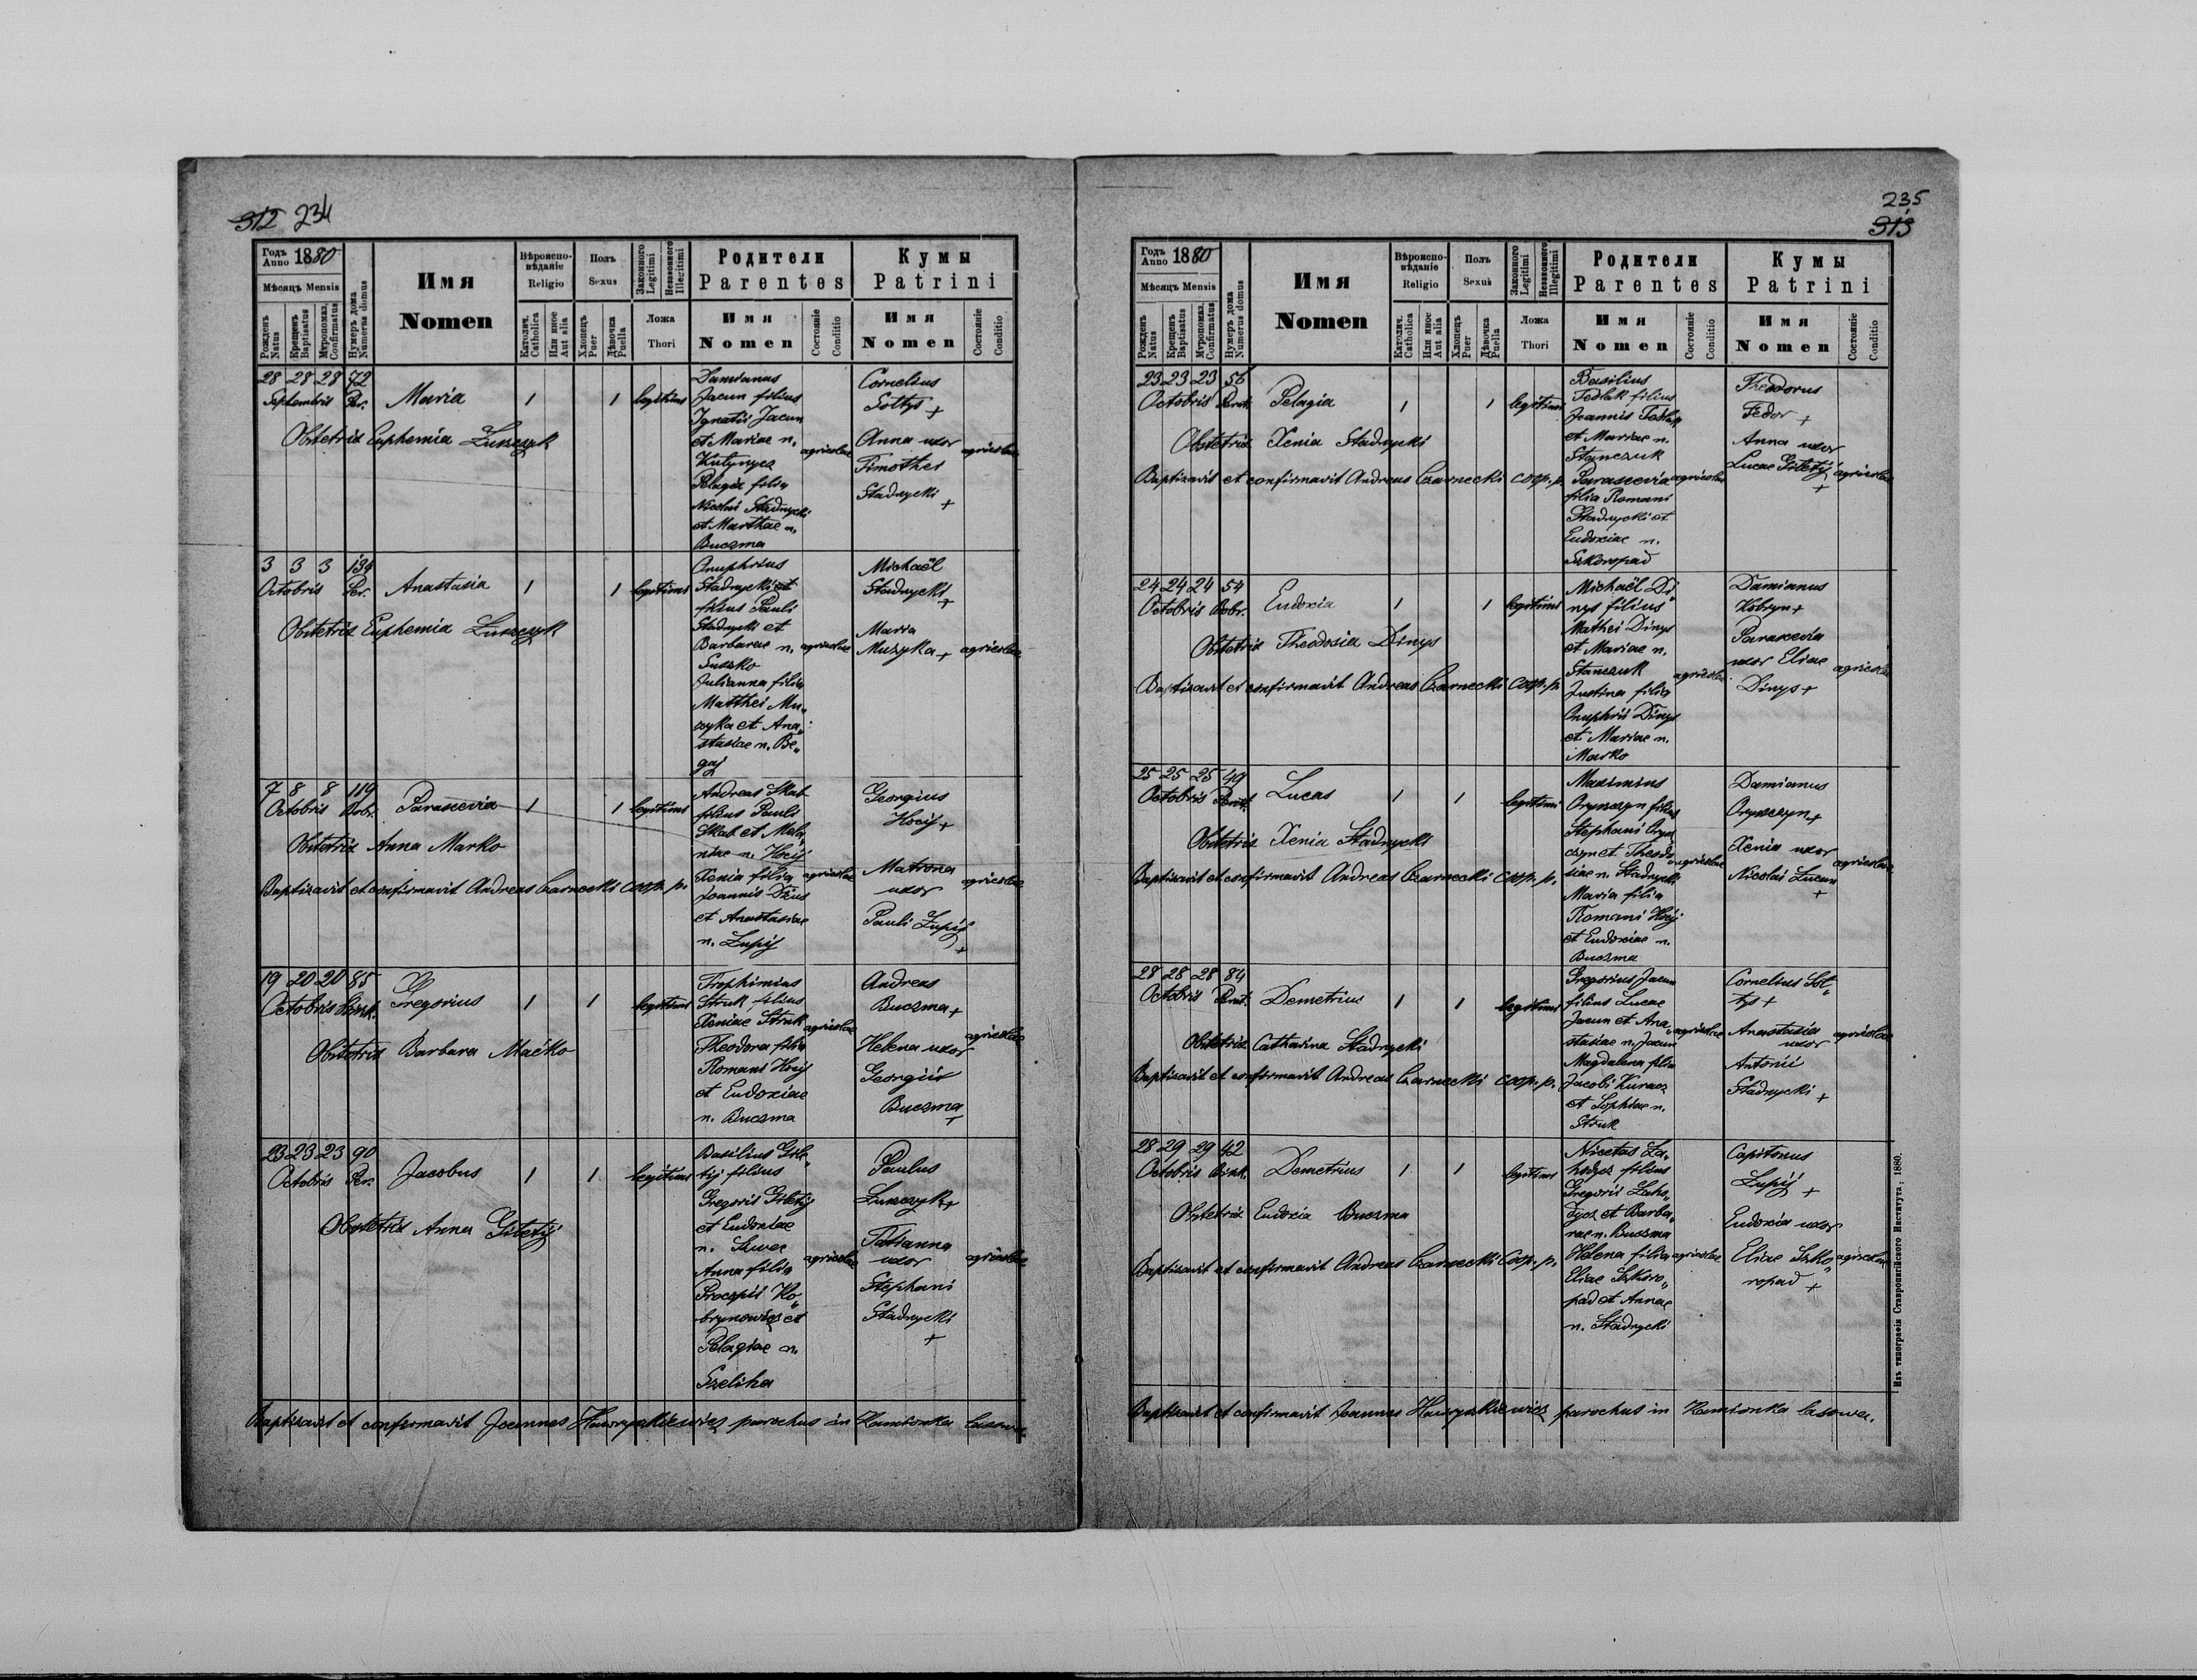 312 234
Годъ Anno 1880
Мѣсяцъ Mensis
Рожденъ Natus
Крещенъ Baptisatus
Мѵропомаз. Confirmatus
Нумеръ дома Numerus domus
Имя
Nomen
Вѣроиспо-
вѣданіе
Religio
Католич. Catholica
Или иное Aut alia
Полъ
Sexus
Хлопецъ Puer
Дѣвочка Puella
Законного Legitimi
Незаконного Illegitimi
Ложа
Thori
Родители
Parentes
Имя
Nomen
Состояніе Conditio
Кумы
Patrini
Имя
Nomen
Состояніе Conditio
28 28 28 72
Septembris Per.
Maria
1
1
legitimi
Damianus
Jacun filius
Ignatii Jacun
et Mariae n.
Kutynycz
Pelagia filia
Nicolai Stadnycki
et Marthae n.
Buczma
agricolae
Cornelius
Soltys +
Anna uxor
Timothei
Stadnycki
+
agricolae
Obstetrix Euphemia Luszczyk
3 3 3 134
Octobris Per.
Anastasia
1
1
legitimi
Onuphrius
Stadnycki et
filius Pauli
Stadnycki et
Barbarae n.
Suszko
Julianna filia
Matthei Mu„
zyka et Ana„
stasiae n. Be„
gaj
agricolae
Michaël
Stadnycki
+
Maria
Muzyka +
agricolae
Obstetrix Euphemia Luszczyk
7 8 8 119
Octobris Dobr.
Parascevia
1
1
legitimi
Andreas Skab
filius Pauli
Skab et Mela„
niae n. Hocij
Xenia filia
Joannis Dżus
et Anastasiae
n. Lupij
agricolae
Georgius
Hocij +
Matrona
uxor
Pauli Lupij
+
agricolae
Obstetrix Anna Marko
Baptizavit et confirmavit Andreas Czarnecki coop. p.
19 20 20 85
Octobris
Gregorius
1
1
legitimi
Trophimius
Struk filius
Xeniae Struk
Theodora filia
Romani Hocij
et Eudoxiae
n. Buczma
agricolae
Andreas
Buczma +
Helena uxor
Georgii
Buczma
+
agricolae
Obstetrix Barbara Maćko
23 23 23 90
Octobris Per.
Jacobus
1
1
legitimi
Basilius Gile„
tij filius
Gregorii Giletij
et Eudoxiae
n. Szwec
Anna filia
Procopii Ko„
brynowicz et
Pelagiae n.
Szeliha
agricolae
Paulus
Luszczyk +
Tatianna
uxor
Stephani
Stadnycki
+
agricolae
Obstetrix Anna Giletij
Baptizavit et confirmavit Joannes Hawryszkiewicz parochus in Kamionka lasowa
235
313
Годъ Anno 1880
Мѣсяцъ Mensis
Рожденъ Natus
Крещенъ Baptisatus
Мѵропомаз. Confirmatus
Нумеръ дома Numerus domus
Имя
Nomen
Вѣроиспо-
вѣданіе
Religio
Католич. Catholica
Или иное Aut alia
Полъ
Sexus
Хлопецъ Puer
Дѣвочка Puella
Законного Legitimi
Незаконного Illegitimi
Ложа
Thori
Родители
Parentes
Имя
Nomen
Состояніе Conditio
Кумы
Patrini
Имя
Nomen
Состояніе Conditio
23 23 23 56
Octobris
Pelagia
1
1
legitimi
Basilius
Fedak filius
Joannis Fedak
et Mariae n.
Stanczuk
Parascevia
filia Romani
Stadnycki et
Eudoxiae n.
Szkoropad
agricolae
Theodorus
Fedor +
Anna uxor
Lucae Giletij
+
agricolae
Obstetrix Xenia Stadnycki
Baptizavit et confirmavit Andreas Czarnecki coop. p.
24 24 24 54
Octobris Dobr.
Eudoxia
1
1
legitimi
Michaël Di„
nys filius
Mathei Dinys
et Mariae n.
Stanczuk
Justina filia
Onuphrii Dinys
et Mariae n.
Marko
agricolae
Damianus
Kobryn +
Parascevia
uxor Eliae
Dinys +
agricolae
Obstetrix Theodosia Dinys
Baptizavit et confirmavit Andreas Czarnecki coop. p.
25 25 25 49
Octobris
Lucas
1
1
legitimi
Maximius
Oryszczyn filius
Stephani Orysz
czyn et Theodo„
siae n. Stadnycki
Maria filia
Romani Hocij
et Eudoxiae n.
Buczma
agricolae
Damianus
Oryszczyn +
Xenia uxor
Nicolai
+
agricolae
Obstetrix Xenia Stadnycki
Baptizavit et confirmavit Andreas Czarnecki coop. p.
28 28 28 84
Octobris
Demetrius
1
1
legitimi
Gregorius Jacun
filius Lucae
Jacun et Ana„
stasiae n. Jacun
Magdalena filia
Jacobi Kuracz
et Sophiae n.
Struk
agricolae
Cornelius Sol„
tys +
Anastasia
uxor
Antonii
Stadnycki +
agricolae
Obstetrix Catharina Stadnycki
Baptizavit et confirmavit Andreas Czarnecki coop. p.
28 29 29 42
Octobris
Demetrius
1
1
legitimi
Nicetas La„
hodycz filius
Gregorii Laho„
dycz et Barba„
rae n. Buczma
Helena filia
Eliae Szkoro„
pad et Annae
n. Stadnycki
agricolae
Capitonus
Lupij +
Eudoxia uxor
Eliae Szko„
ropad +
agricolae
Obstetrix Eudoxia Buczma
Baptizavit et confirmavit Andreas Czarnecki coop. p.
Baptizavit et confirmavit Joannes Hawryszkiewicz parochus in Kamionka lasowa.
Изъ типографіи Ставропигійского Института, 1880.